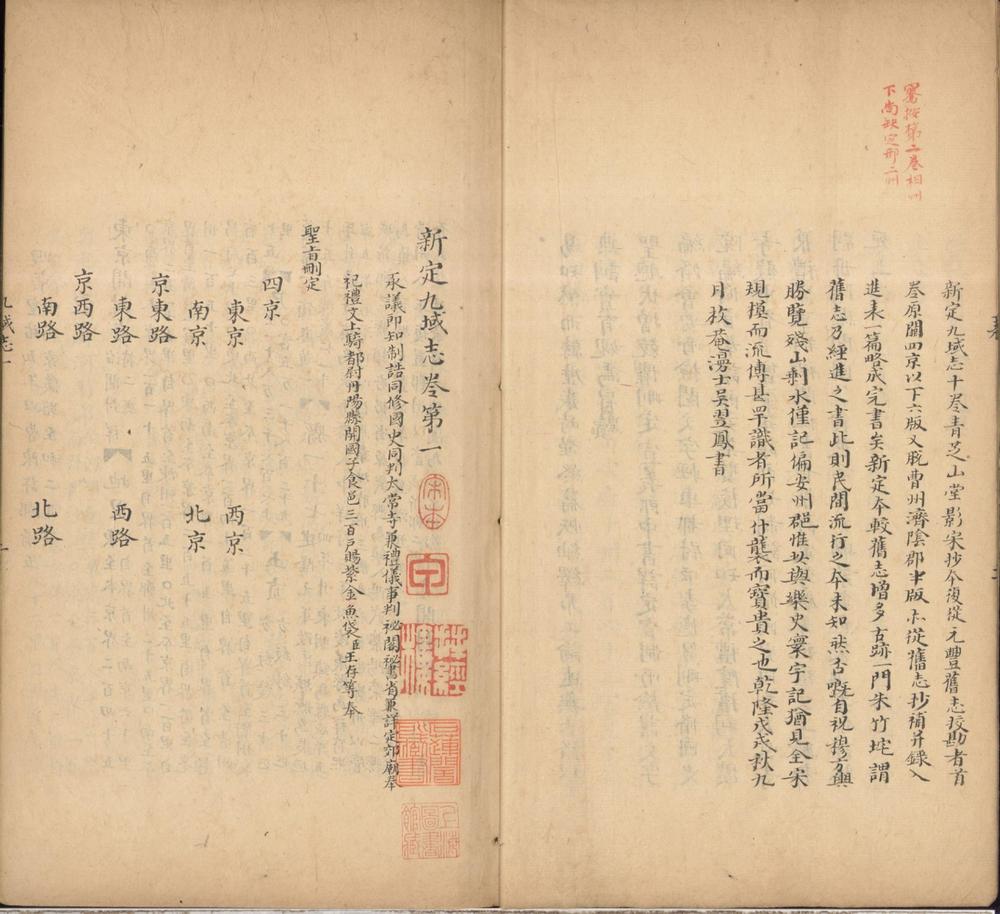 騫按第二卷相州
下尚缺定邢二州
新定九域志十卷青芝山堂影宋抄本復從元豐舊志挍勘者首
卷原闕四京以下六版又脫曹州濟陰郡半版亦從舊志抄補并錄入
進表一篇略成完書矣新定本較舊志增多古跡一門朱竹垞謂
舊志乃經進之書此則民間流行之本未知然否嘅自祝穆方輿
勝覽殘山剩水僅記偏安州郡惟此與樂史寰宇記猶見全宋
規模而流傳甚罕識者所當什襲而寶貴之也乾隆戊戌秋九
月枚菴漫士吳翌鳳書
新定九域志卷第一
承議郎知制誥同修國史同判太常寺兼禮儀事判秘閣秘書省兼詳定郊廟奉
祀禮文上騎都尉丹陽縣開國子食邑三百戶賜紫金魚袋臣王存等奉
聖旨刪定
四京
東京 西京
南京 北京
京東路
東路 西路
京西路
南路 北路
九域志一
上海圖書館藏